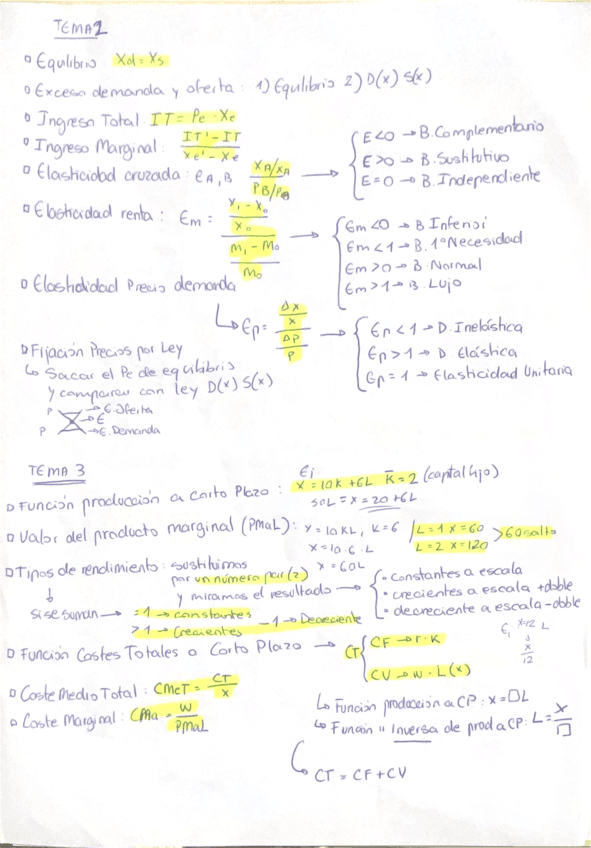 TEMA 2
Equilibrio Xd = Xs
Exceso demanda y oferta : 1) Equilibrio 2) D(x) S(x)
Ingreso Total: IT = Pe · Xe
Ingreso Marginal: IT' - IT / Xe' - Xe
Elasticidad cruzada: eA,B XA/XA / PB/PB
E<0 → B. Complementario
E>0 → B. Sustitutivo
E=0 → B. Independiente
Elasticidad renta : Em = X1 - X0 / X0 / M1 - M0 / M0
Em<0 → B Inferior
Em<1 → B. 1º Necesidad
Em>0 → B. Normal
Em>1 → B. Lujo
Elasticidad Precio demanda
Ep = Δx / x / ΔP / P
Ep<1 → D. Inelástica
Ep>1 → D Elástica
Ep=1 → Elasticidad Unitaria
Fijación Precios por Ley
Sacar el Pe de equilibrio
y comparar con ley D(x) S(x)
P → E. Oferta
→ E
P → E. Demanda
TEMA 3
Ej
Función producción a Corto Plazo : X = 10K + 6L K = 2 (capital fijo)
SOL = X = 20 + 6L
Valor del producto marginal (PMaL): X = 10KL, K = 6 / L=1 X=60 > 60 salto
X = 10·6·L L=2 X=120
X = 60L
Tipos de rendimiento: sustituimos
por un número par (2)
y miramos el resultado
constantes a escala
crecientes a escala + doble
decreciente a escala - doble
si se suman → =1 → constantes
>1 → Crecientes -1 → Decreciente
Ej X=12 L
X
12
Función Costes Totales a Corto Plazo → CT
CF → r·K
CV → w·L(x)
Coste Medio Total: CMeT = CT / X
Coste Marginal: CMa = W / PMaL
Función producción a CP: X = □L
Función " Inversa de prod a CP: L = X / □
CT = CF + CV